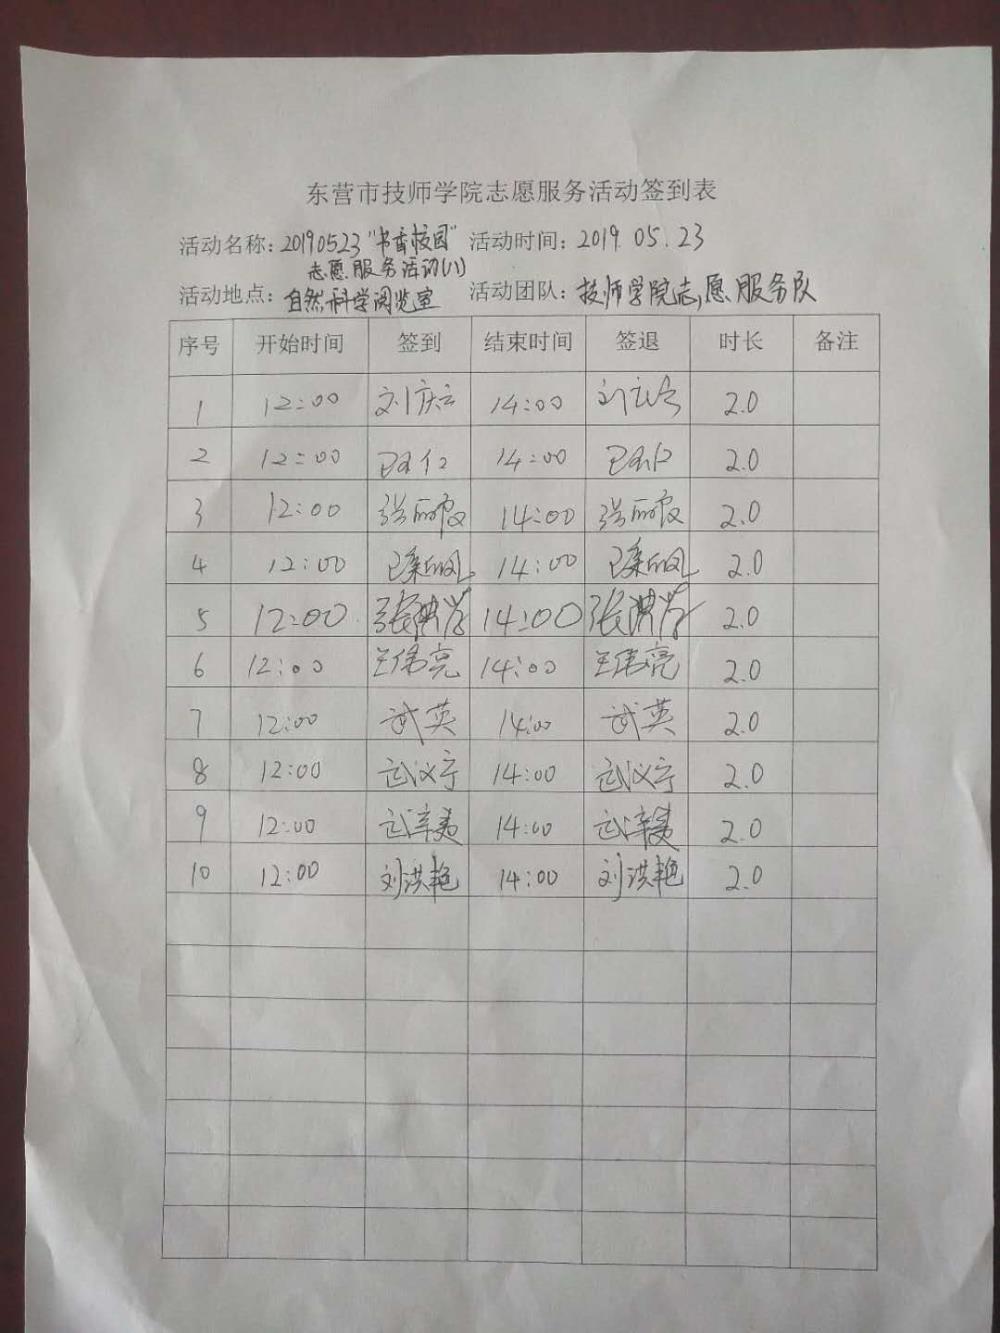 东营市技师学院志愿服务活动签到表
活动名称：20190523"书香校园" 活动时间：2019.05.23
志愿服务活动(八)
活动地点：自然科学阅览室 活动团队：技师学院志愿服务队
序号 开始时间 签到 结束时间 签退 时长 备注
1 12:00 刘庆云 14:00 刘庆云 2.0
2 12:00 14:00 2.0
3 12:00 张丽霞 14:00 张丽霞 2.0
4 12:00 14:00 2.0
5 12:00 张洪学 14:00 张洪学 2.0
6 12:00 王伟亮 14:00 王伟亮 2.0
7 12:00 武英 14:00 武英 2.0
8 12:00 武汶宁 14:00 武汶宁 2.0
9 12:00 14:00 2.0
10 12:00 刘洪艳 14:00 刘洪艳 2.0